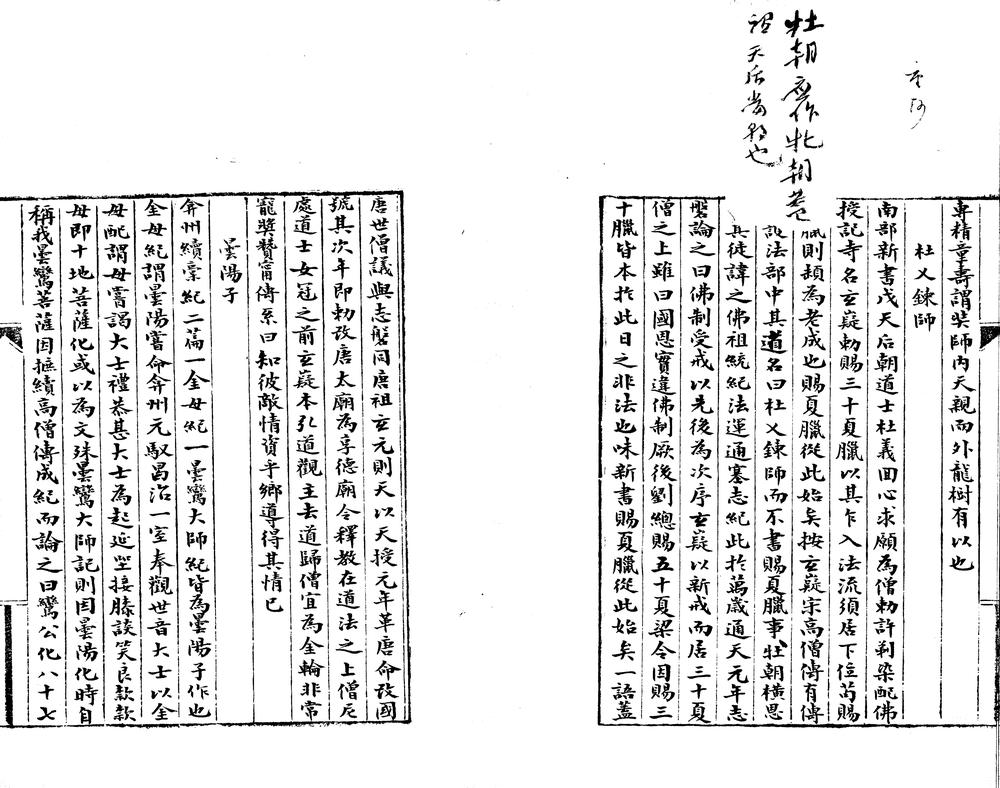 專精童壽謂奘師內天親而外龍樹有以也
杜乂鍊師
南部新書戊天后朝道士杜義回心求願為僧勅許剃染配佛
授記寺名玄嶷勅賜三十夏臘以其乍入法流須居下位苟賜
臘則頳為老成也賜夏臘從此始矣按玄嶷宋高僧傳有傳
法部中其道名曰杜乂鍊師而不書賜夏臘事牡朝橫恩
其徒諱之佛祖統紀法運通塞志紀此於萬歲通天元年志
磐論之曰佛制受戒以先後為次序玄嶷以新戒而居三十夏
僧之上雖曰國恩實違佛制厥後劉總賜五十夏梁令因賜三
十臘皆本於此日之非法也味新書賜夏臘從此始矣一語蓋
牡朝應作牝朝蓋
謂天后當朝也
唐世僧議與志磐同唐祖玄元則天以天授元年革唐命改國
號其次年即勅改唐太廟為享德廟令釋教在道法之上僧尼
處道士女冠之前玄嶷本弘道觀主去道歸僧宜為金輪非常
寵獎贊寧傳系曰知彼敵情資乎鄉導得其情已
曇陽子
弇州續稾紀二篇一金母紀一曇鸞大師紀皆為曇陽子作也
金母紀謂曇陽嘗命弇州元馭昌治一室奉觀世音大士以金
母配謂母嘗謁大士禮恭甚大士為起延坐接膝談笑良款款
母即十地菩薩化或以為文殊曇鸞大師記則因曇陽化時自
稱我曇鸞菩薩因摭續高僧傳成紀而論之曰鸞公化八十七